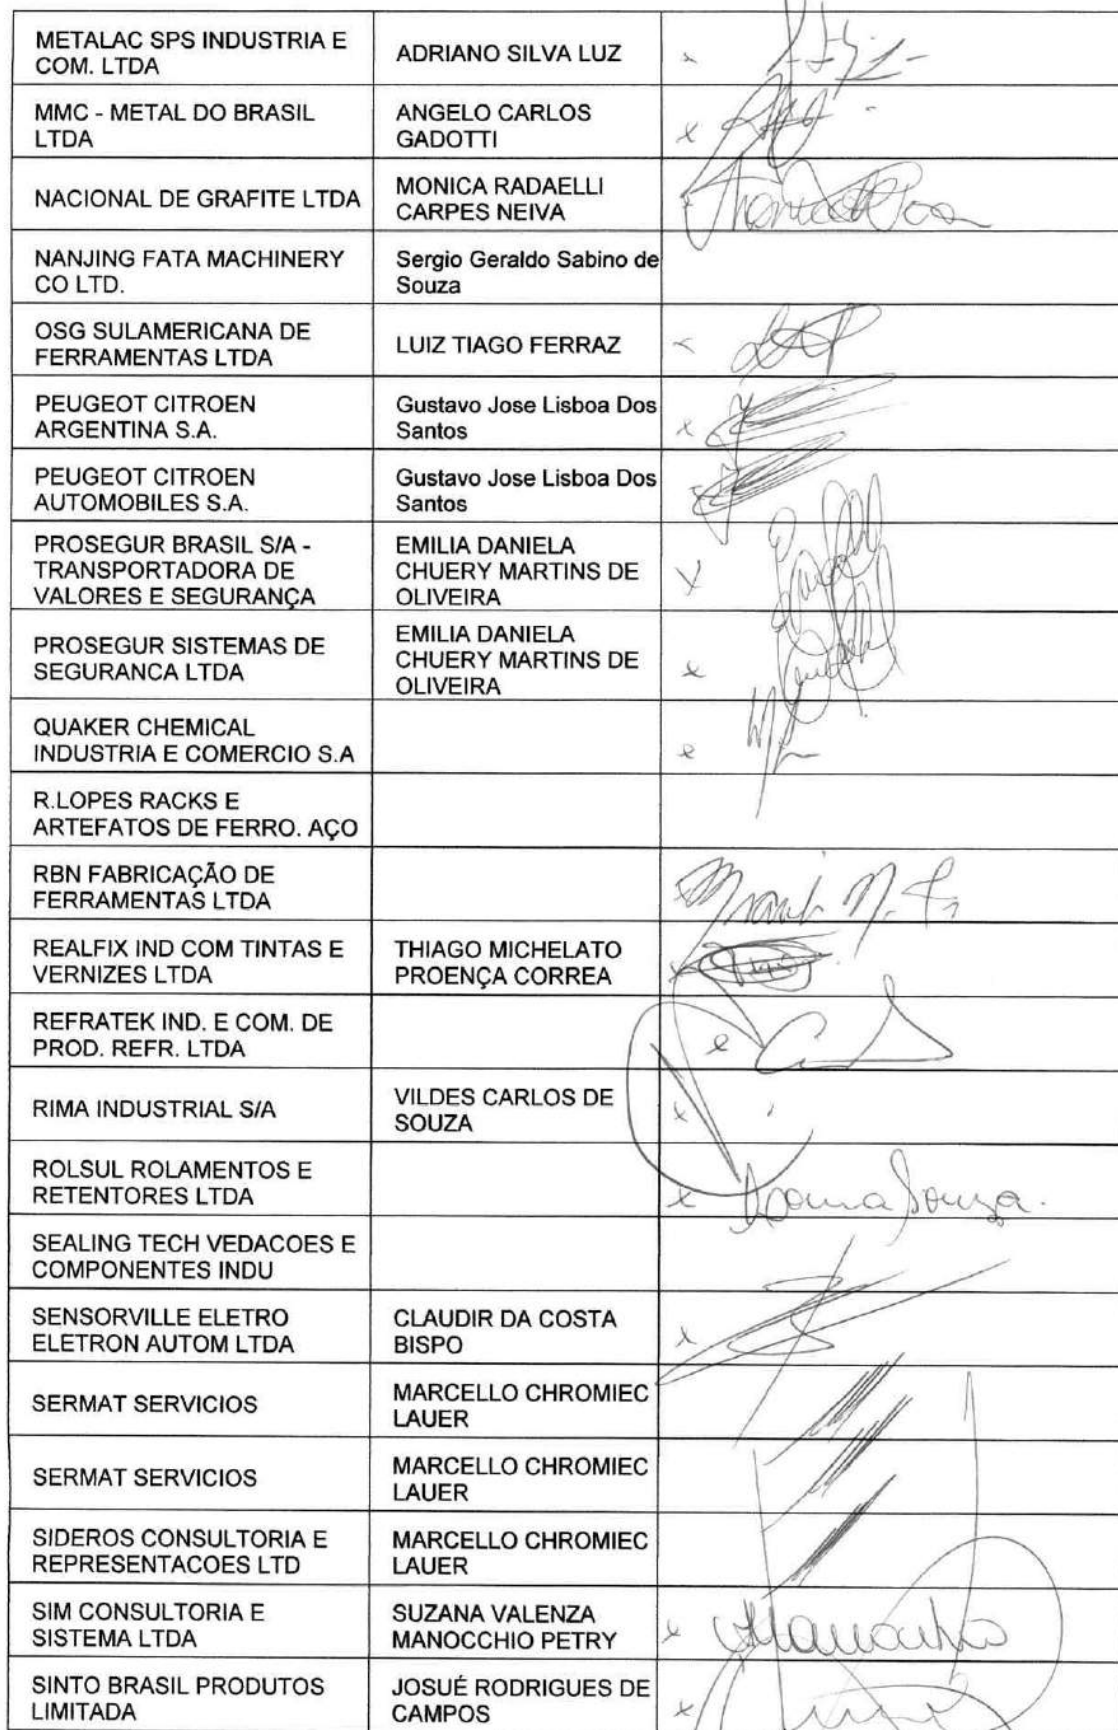 METALAC SPS INDUSTRIA E
COM. LTDA
ADRIANO SILVA LUZ
x
MMC - METAL DO BRASIL
LTDA
ANGELO CARLOS
GADOTTI
x
NACIONAL DE GRAFITE LTDA
MONICA RADAELLI
CARPES NEIVA
x
NANJING FATA MACHINERY
CO LTD.
Sergio Geraldo Sabino de
Souza
OSG SULAMERICANA DE
FERRAMENTAS LTDA
LUIZ TIAGO FERRAZ
PEUGEOT CITROEN
ARGENTINA S.A.
Gustavo Jose Lisboa Dos
Santos
x
PEUGEOT CITROEN
AUTOMOBILES S.A.
Gustavo Jose Lisboa Dos
Santos
PROSEGUR BRASIL S/A -
TRANSPORTADORA DE
VALORES E SEGURANÇA
EMILIA DANIELA
CHUERY MARTINS DE
OLIVEIRA
x
PROSEGUR SISTEMAS DE
SEGURANCA LTDA
EMILIA DANIELA
CHUERY MARTINS DE
OLIVEIRA
x
QUAKER CHEMICAL
INDUSTRIA E COMERCIO S.A
x
R.LOPES RACKS E
ARTEFATOS DE FERRO. AÇO
RBN FABRICAÇÃO DE
FERRAMENTAS LTDA
REALFIX IND COM TINTAS E
VERNIZES LTDA
THIAGO MICHELATO
PROENÇA CORREA
x
REFRATEK IND. E COM. DE
PROD. REFR. LTDA
x
RIMA INDUSTRIAL S/A
VILDES CARLOS DE
SOUZA
x
ROLSUL ROLAMENTOS E
RETENTORES LTDA
x Souza.
SEALING TECH VEDACOES E
COMPONENTES INDU
SENSORVILLE ELETRO
ELETRON AUTOM LTDA
CLAUDIR DA COSTA
BISPO
x
SERMAT SERVICIOS
MARCELLO CHROMIEC
LAUER
SERMAT SERVICIOS
MARCELLO CHROMIEC
LAUER
SIDEROS CONSULTORIA E
REPRESENTACOES LTD
MARCELLO CHROMIEC
LAUER
SIM CONSULTORIA E
SISTEMA LTDA
SUZANA VALENZA
MANOCCHIO PETRY
x
SINTO BRASIL PRODUTOS
LIMITADA
JOSUÉ RODRIGUES DE
CAMPOS
x